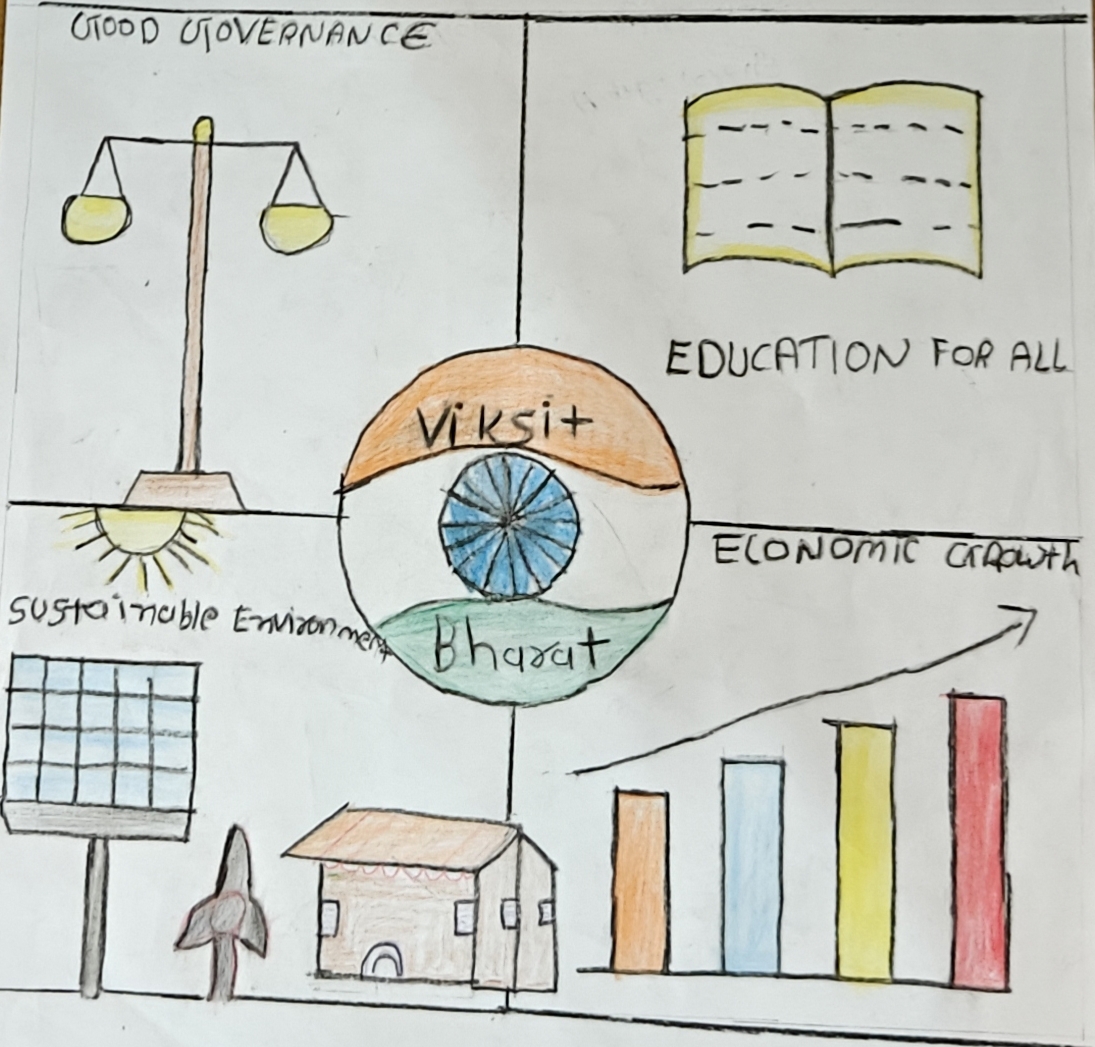 GOOD GOVERNANCE
EDUCATION FOR ALL
Viksit
Bharat
ECONOMIC GROWTH
Sustainable Environment